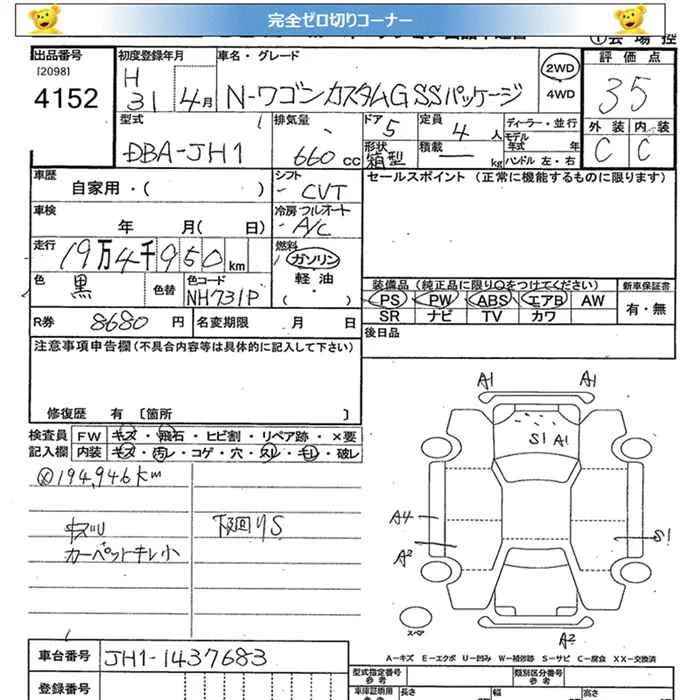 完全ゼロ切りコーナー
出品番号 初度登録年月 車名・グレード 評価点
[2098] H 31 4月 N-ワゴンカスタムG SSパッケージ 2WD 35
4152 4WD
型式 排気量 ドア 定員 ディーラー・並行 外装 内装
DBA-JH1 660 cc 5 4人 モデル年式 年 C C
形状 箱型 積載 ー kg ハンドル 左・右
車歴 シフト セールスポイント (正常に機能するものに限ります)
自家用・( ) CVT
車検 冷房 フルオート
年 月( 日) A/C
走行 19万4千950km 燃料 ガソリン
色 黒 色替 色コード NH731P 軽油 ( ・ )
装備品(純正品に限り○をつけてください) 新車保証書
PS PW ABS エアB AW 有・無
SR ナビ TV カワ
R券 8680円 名変期限 月 日 後日品
注意事項申告欄(不具合内容等は具体的に記入して下さい)
修復歴 有 〔箇所 〕
検査員 FW キズ・飛石・ヒビ割・リペア跡・×要
記入欄 内装 キズ・汚レ・コゲ・穴・スレ・キレ・破レ
194,946km
下廻りS
カーペットキレ小
A1 A1
S1 A1
A4
A2 S1
スペア A2
A-キズ E-エクボ U-凹み W-補修跡 S-サビ C-腐食 XX-交換済
車台番号 JH1-1437683 型式指定番号 参考 類別区分番号 参考
登録番号 車庫証明用 参考 長さ 幅 高さ